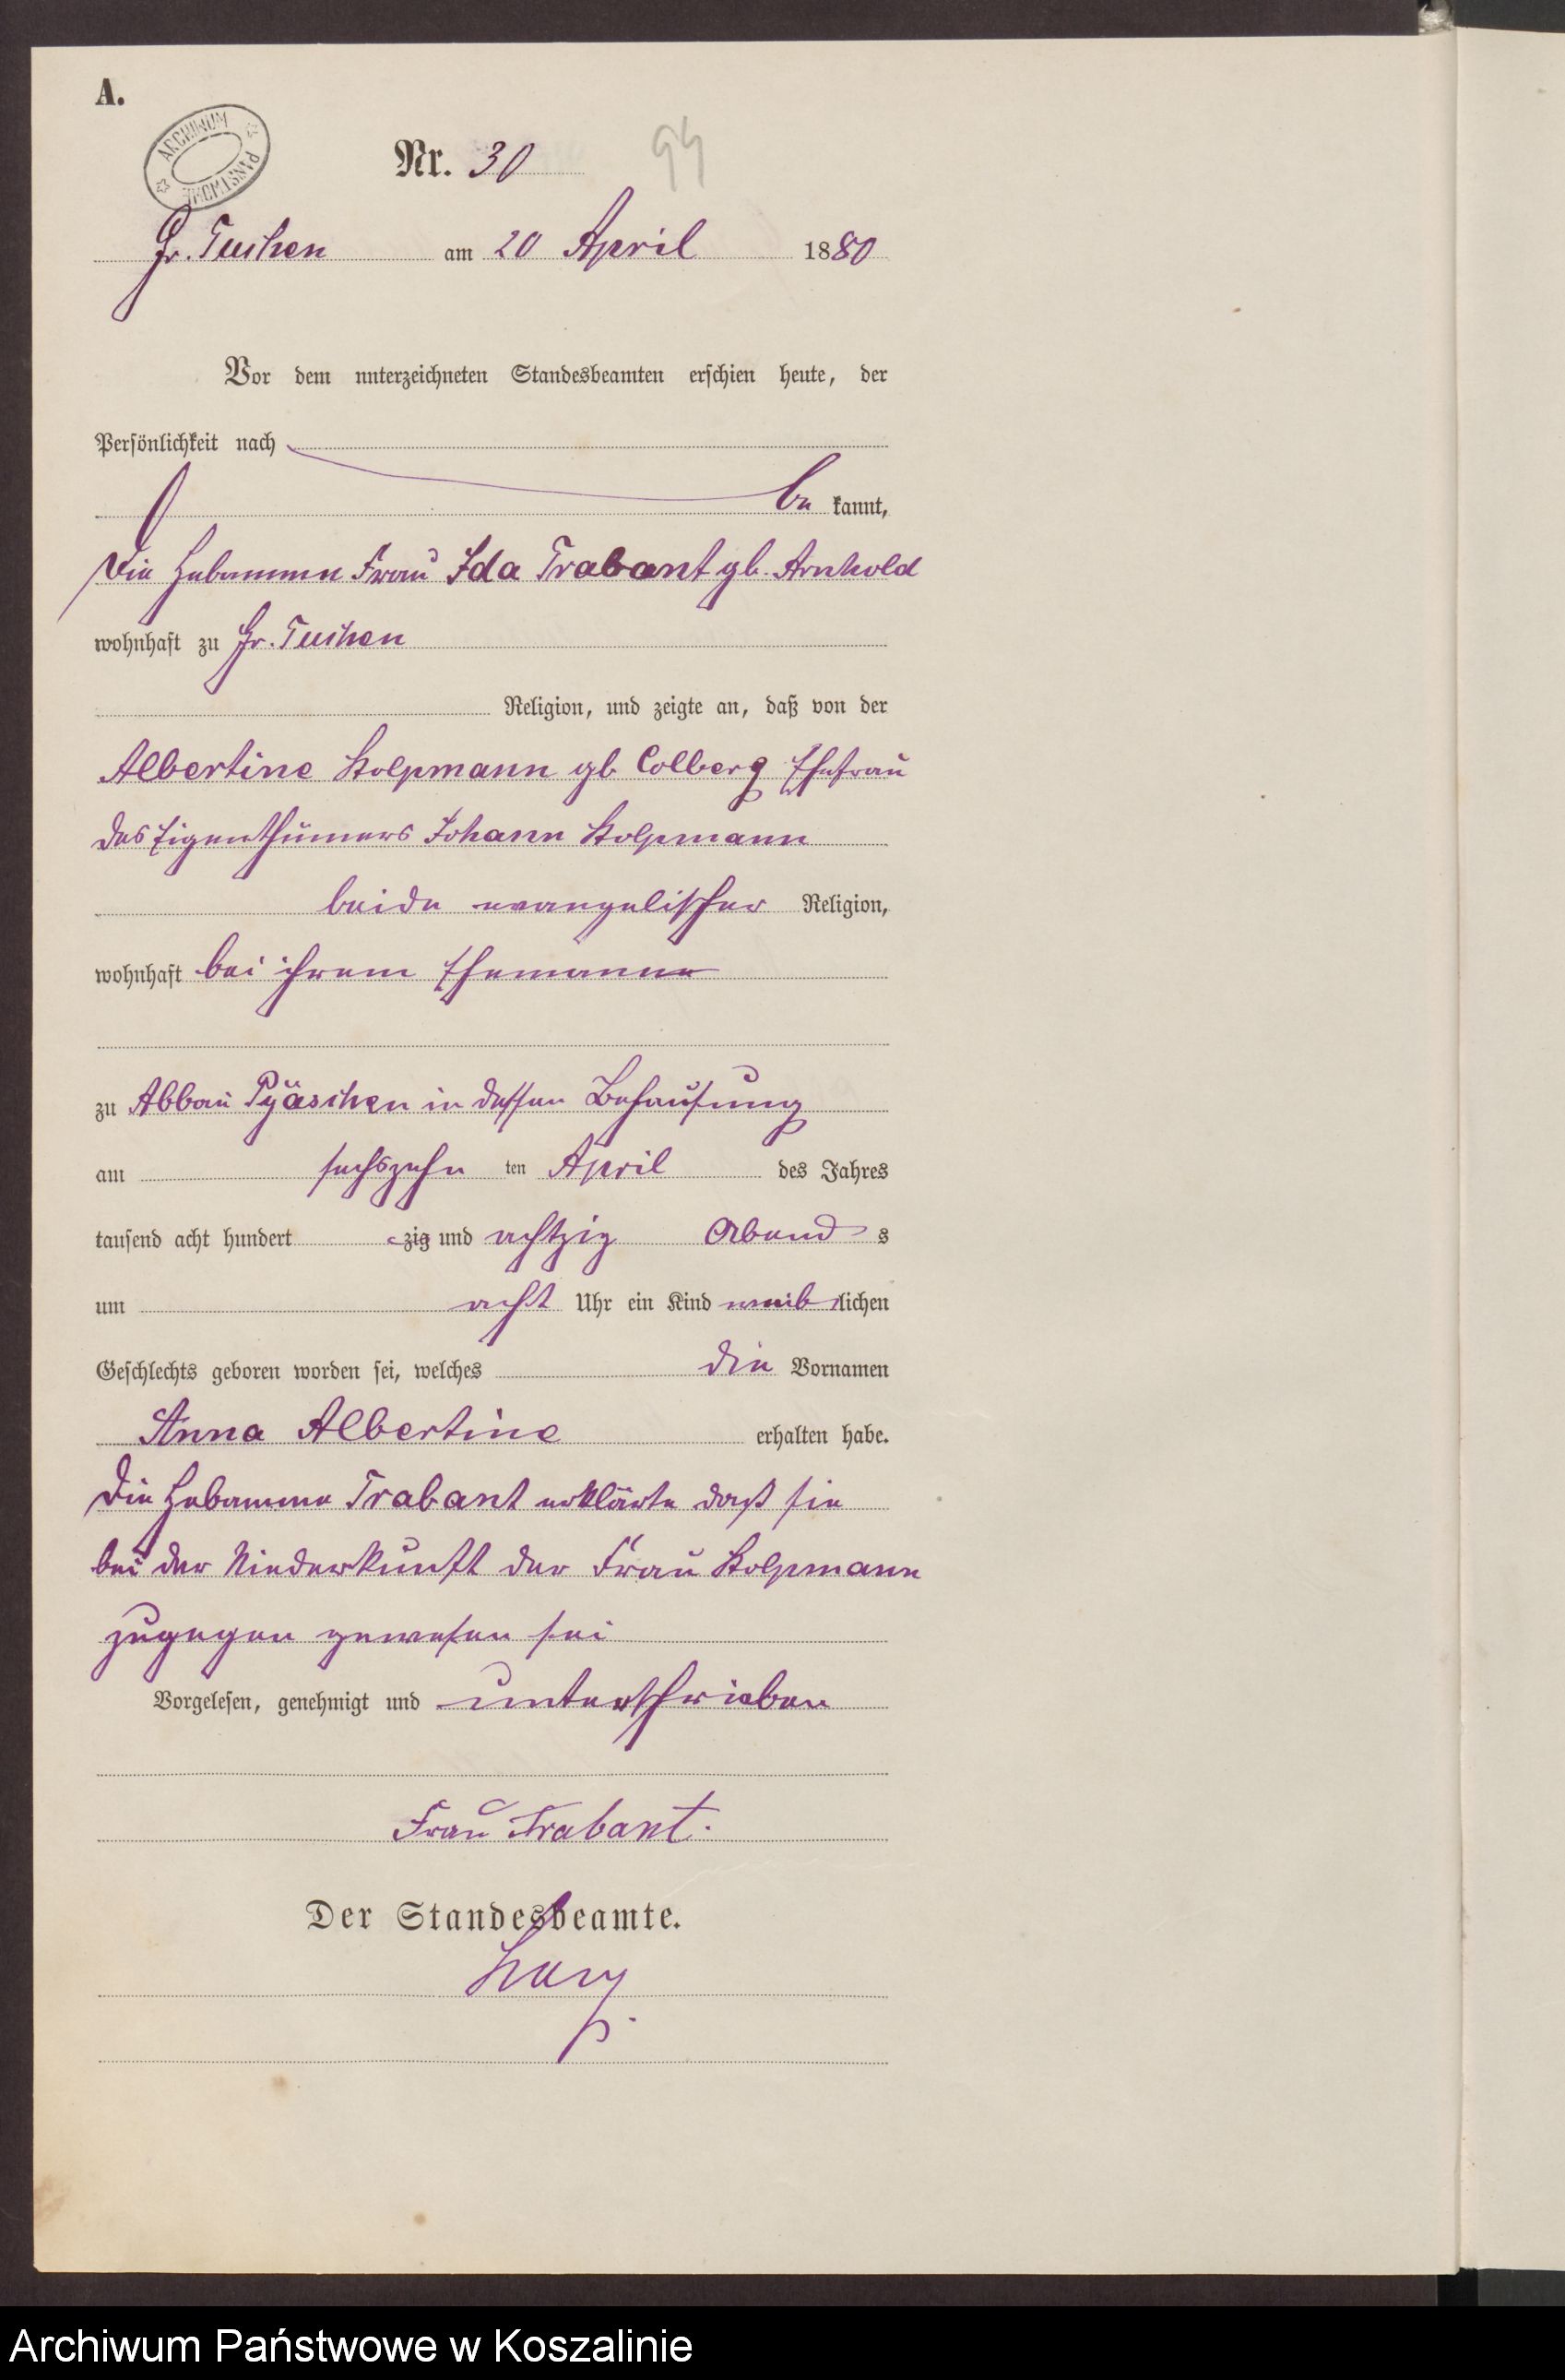 A.
ARCHIWUM PAŃSTWOWE
Nr. 30
94
Gr. Tuchen am 20 April 1880
Vor dem unterzeichneten Standesbeamten erschien heute, der
Persönlichkeit nach
be kannt,
die Hebamme Frau Ida Trabant gb. Arnhold
wohnhaft zu Gr. Tuchen
Religion, und zeigte an, daß von der
Albertine Stolpmann gb Colberg Ehefrau
des Eigenthümers Johann Stolpmann
beide evangelischer Religion,
wohnhaft bei ihrem Ehemanne
zu Abbau Pyäschen in dessen Behausung
am sechszehn ten April des Jahres
tausend acht hundert zig und achtzig Abend s
um acht Uhr ein Kind weib lichen
Geschlechts geboren worden sei, welches die Vornamen
Anna Albertine erhalten habe.
Die Hebamme Trabant erklärte daß sie
bei der Niederkunft der Frau Stolpmann
zugegen gewesen sei
Vorgelesen, genehmigt und unterschrieben
Frau Trabant.
Der Standesbeamte.
Archiwum Państwowe w Koszalinie